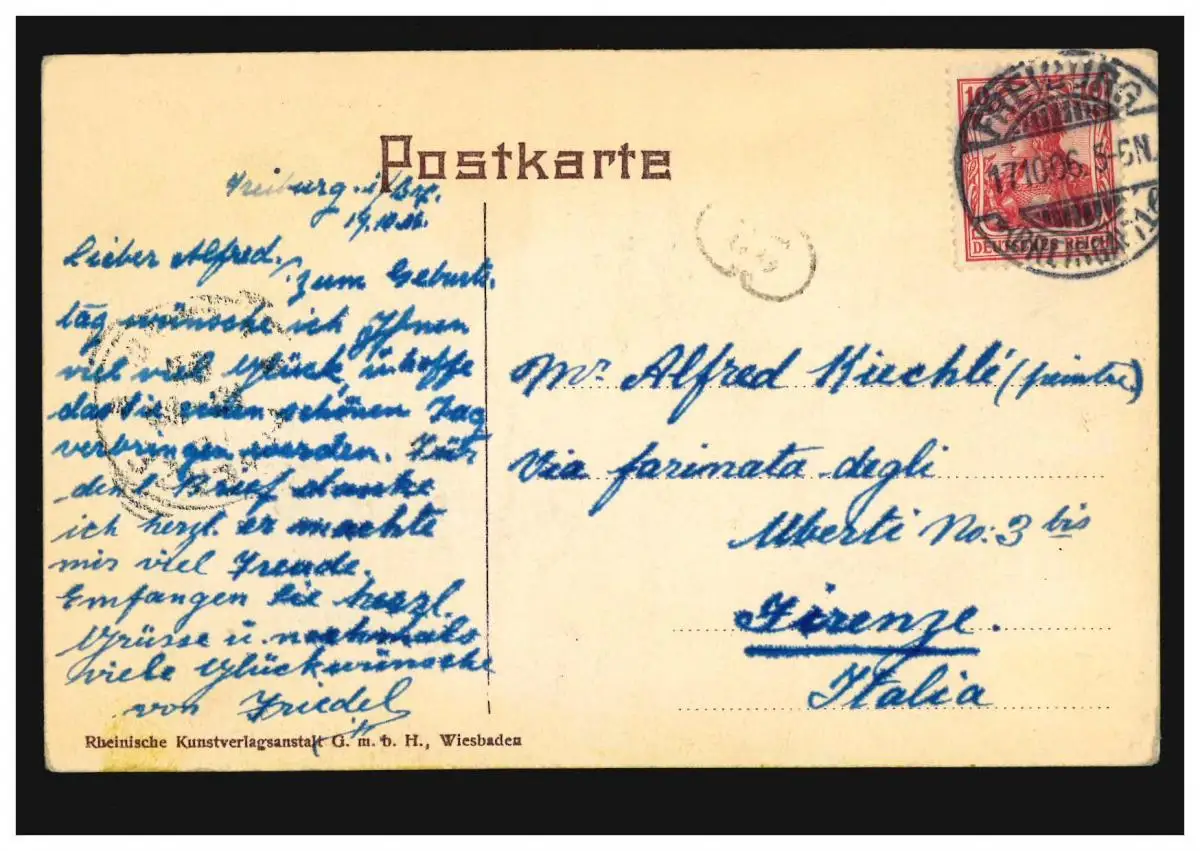 Postkarte
Freiburg i/Br.
17.10.06.
Lieber Alfred.
Zum Geburts-
tag wünsche ich Ihnen
viel viel Glück, u hoffe
das Sie einen schönen Tag
verbringen werden. Für
den Brief danke
ich herzl. er machte
mir viel Freude.
Empfangen Sie herzl.
Grüsse u. nochmals
viele Glückwünsche
von Friedel
Rheinische Kunstverlagsanstalt G. m. b. H., Wiesbaden
10 10
DEUTSCHES REICH
FREIBURG
17.10.06. 5-6N.
Mr Alfred Kiechlé (peintre)
Via farinata degli
Uberti No: 3 bis
Firenze.
Italia